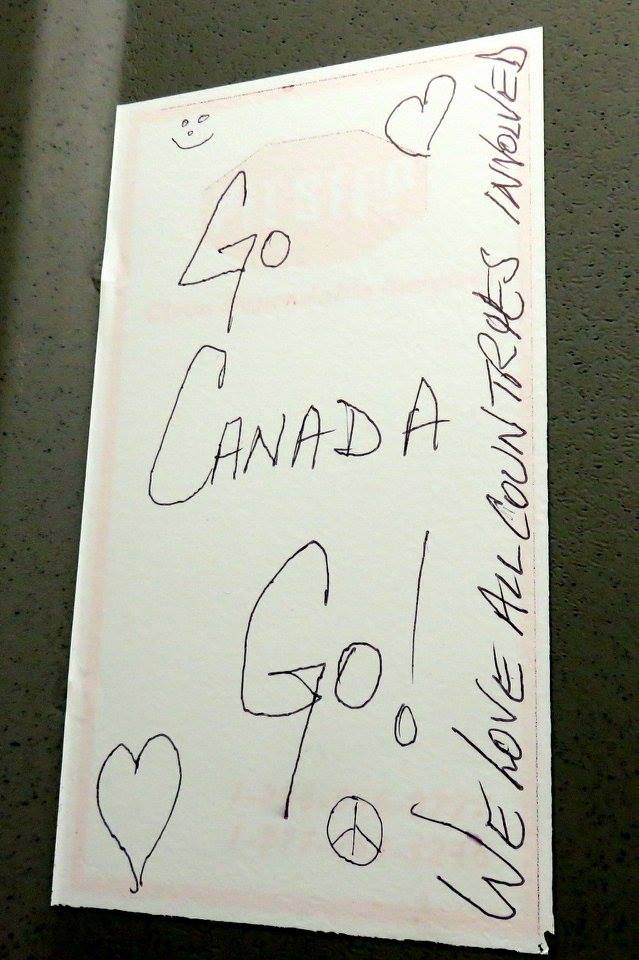 Go
CANADA
Go!
WE LOVE ALL COUNTRIES INVOLVED